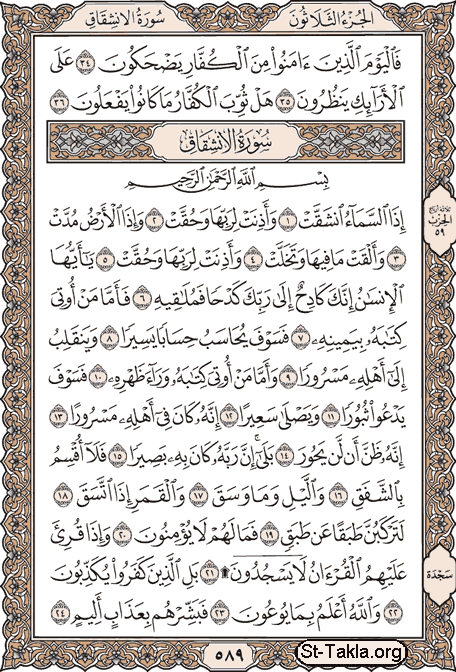 الجزء الثلاثون سورة الانشقاق
فَٱلْيَوْمَ ٱلَّذِينَ ءَامَنُوا۟ مِنَ ٱلْكُفَّارِ يَضْحَكُونَ ٣٤ عَلَى
ٱلْأَرَآئِكِ يَنظُرُونَ ٣٥ هَلْ ثُوِّبَ ٱلْكُفَّارُ مَا كَانُوا۟ يَفْعَلُونَ ٣٦
سُورَةُ الانْشِقَاقِ
بِسْمِ ٱللَّهِ ٱلرَّحْمَٰنِ ٱلرَّحِيمِ
إِذَا ٱلسَّمَآءُ ٱنشَقَّتْ ١ وَأَذِنَتْ لِرَبِّهَا وَحُقَّتْ ٢ وَإِذَا ٱلْأَرْضُ مُدَّتْ
٣ وَأَلْقَتْ مَا فِيهَا وَتَخَلَّتْ ٤ وَأَذِنَتْ لِرَبِّهَا وَحُقَّتْ ٥ يَٰٓأَيُّهَا
ٱلْإِنسَٰنُ إِنَّكَ كَادِحٌ إِلَىٰ رَبِّكَ كَدْحًا فَمُلَٰقِيهِ ٦ فَأَمَّا مَنْ أُوتِىَ
كِتَٰبَهُۥ بِيَمِينِهِۦ ٧ فَسَوْفَ يُحَاسَبُ حِسَابًا يَسِيرًا ٨ وَيَنقَلِبُ
إِلَىٰٓ أَهْلِهِۦ مَسْرُورًا ٩ وَأَمَّا مَنْ أُوتِىَ كِتَٰبَهُۥ وَرَآءَ ظَهْرِهِۦ ١٠ فَسَوْفَ
يَدْعُوا۟ ثُبُورًا ١١ وَيَصْلَىٰ سَعِيرًا ١٢ إِنَّهُۥ كَانَ فِىٓ أَهْلِهِۦ مَسْرُورًا ١٣
إِنَّهُۥ ظَنَّ أَن لَّن يَحُورَ ١٤ بَلَىٰٓ إِنَّ رَبَّهُۥ كَانَ بِهِۦ بَصِيرًا ١٥ فَلَآ أُقْسِمُ
بِٱلشَّفَقِ ١٦ وَٱلَّيْلِ وَمَا وَسَقَ ١٧ وَٱلْقَمَرِ إِذَا ٱتَّسَقَ ١٨
لَتَرْكَبُنَّ طَبَقًا عَن طَبَقٍ ١٩ فَمَا لَهُمْ لَا يُؤْمِنُونَ ٢٠ وَإِذَا قُرِئَ
عَلَيْهِمُ ٱلْقُرْءَانُ لَا يَسْجُدُونَ ۩ ٢١ بَلِ ٱلَّذِينَ كَفَرُوا۟ يُكَذِّبُونَ
٢٢ وَٱللَّهُ أَعْلَمُ بِمَا يُوعُونَ ٢٣ فَبَشِّرْهُم بِعَذَابٍ أَلِيمٍ ٢٤
٥٨٩
ثلاثة أرباع
الحزب
٥٩
سَجْدَة
St-Takla.org